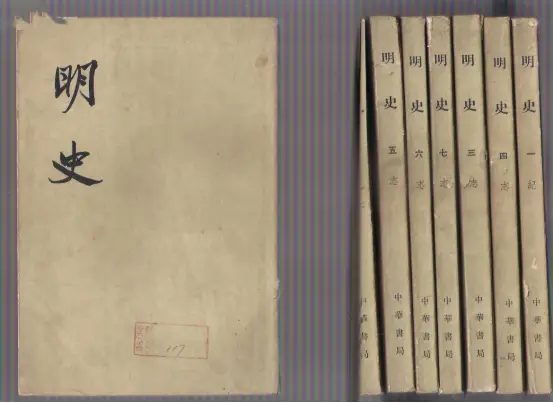 明史
117
中華書局
明史 五 志 中華書局
明史 六 志 中華書局
明史 七 志 中華書局
明史 三 志 中華書局
明史 四 志 中華書局
明史 一 紀 中華書局